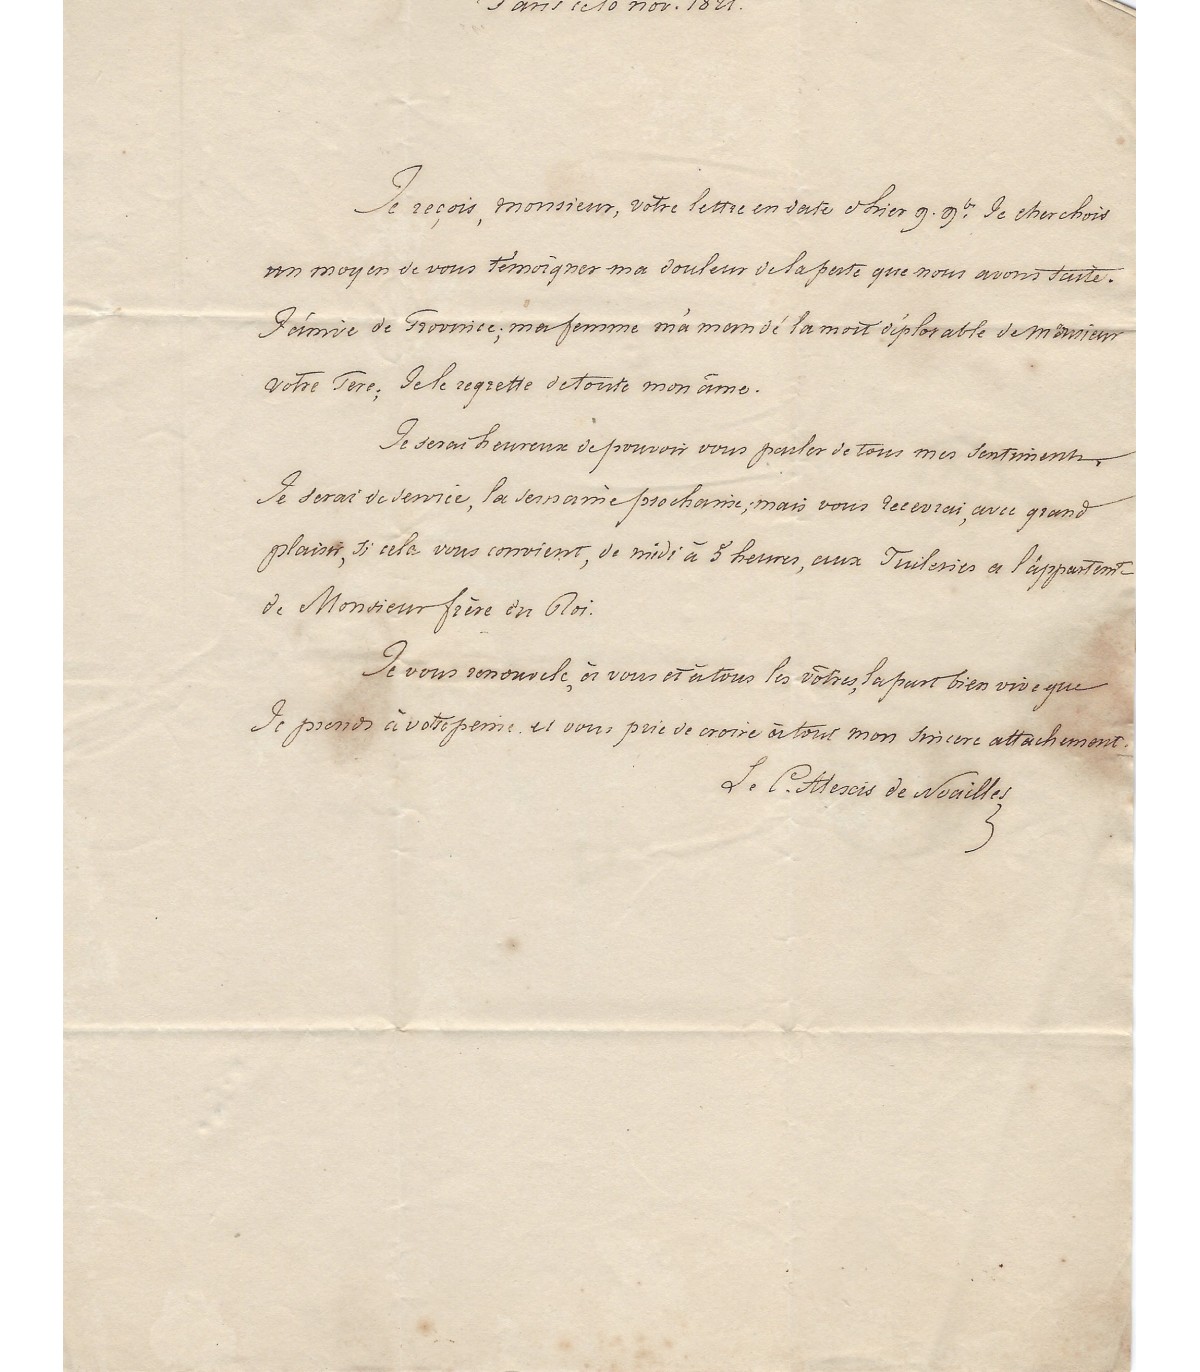 Paris ce 10 nov. 1821.
Je reçois, monsieur, votre lettre en date d'hier 9. 9b. Je cherchois
un moyen de vous témoigner ma douleur de la perte que nous avons faite.
J'arrive de Province; ma femme m'a mandé la mort déplorable de monsieur
votre Père; Je le regrette de toute mon âme.
Je serai heureux de pouvoir vous parler de tous mes sentiments.
Je serai de service, la semaine prochaine; mais vous recevrai, avec grand
plaisir, si cela vous convient, de midi à 5 heures, aux Tuileries a l'appartemt
de Monsieur frère du Roi.
Je vous renouvele, à vous et à tous les vôtres, la part bien vive que
Je prends à votre peine et vous prie de croire à tout mon sincere attachement.
Le C. Alexis de Noailles